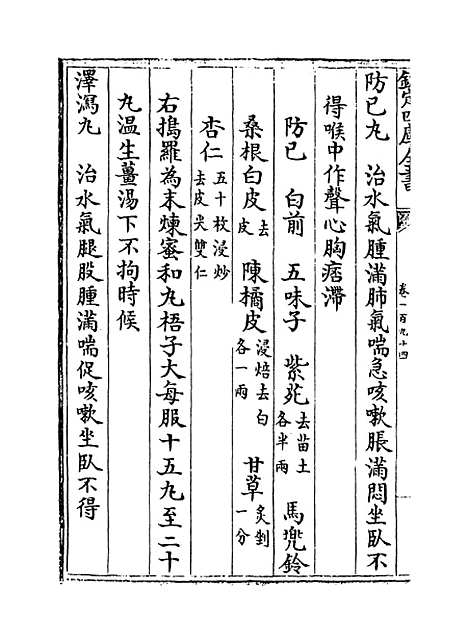 欽定四庫全書
卷一百九十四
防已丸　治水氣腫滿肺氣喘急咳嗽脹滿悶坐臥不
得喉中作聲心胸痞滯
防已　白前　五味子　紫菀去苗土各半兩　馬兜鈴
桑根白皮去皮　陳橘皮浸焙去白各一兩　甘草炙剉一分
杏仁五十枚浸炒去皮尖雙仁
右搗羅為末煉蜜和丸梧子大每服十五丸至二十
丸温生薑湯下不拘時候
澤瀉丸　治水氣腿股腫滿喘促咳嗽坐臥不得